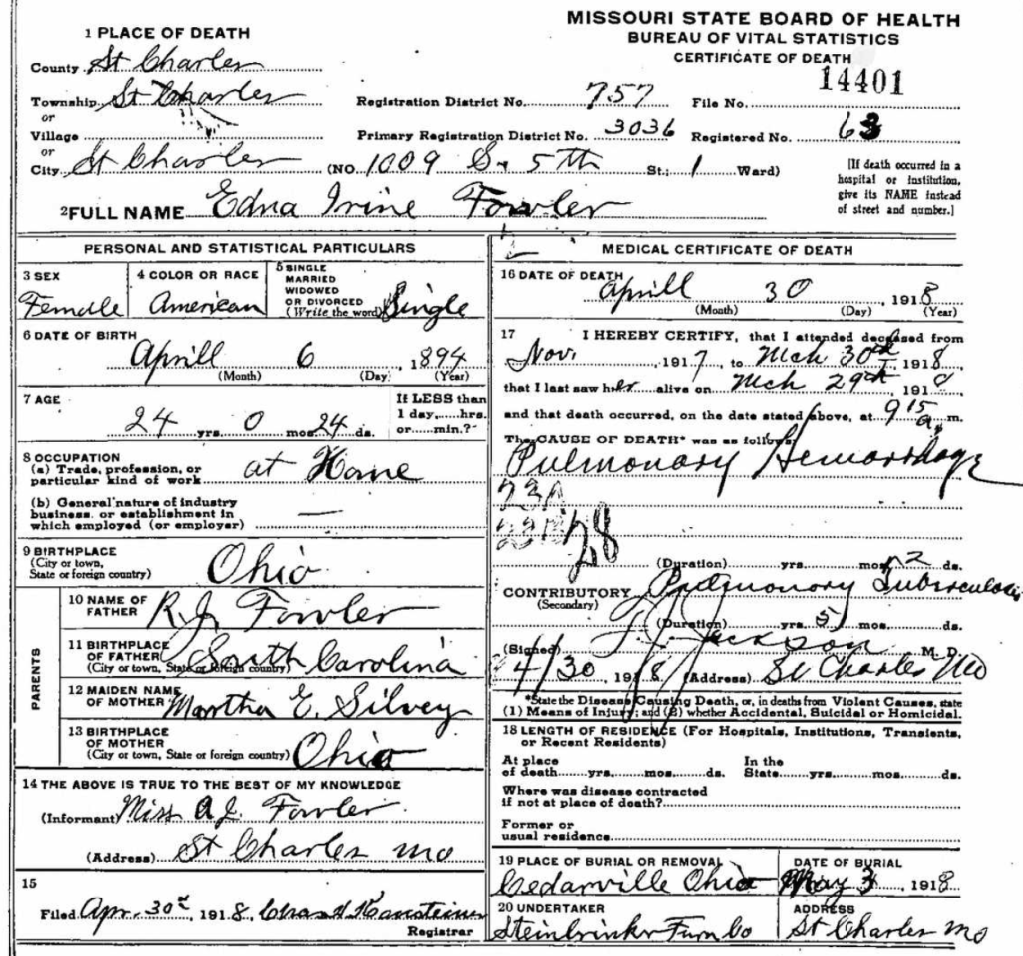 MISSOURI STATE BOARD OF HEALTH
BUREAU OF VITAL STATISTICS
CERTIFICATE OF DEATH
1 PLACE OF DEATH
County St Charles
Township St Charles
or
Village
or
City St Charles (NO. 1009 S. 5th St.; 1 Ward)
Registration District No. 757 File No. 14401
Primary Registration District No. 3036 Registered No. 63
[If death occurred in a
hospital or institution,
give its NAME instead
of street and number.]
2 FULL NAME Edna Irine Fowler
PERSONAL AND STATISTICAL PARTICULARS
3 SEX
Female
4 COLOR OR RACE
American
5 SINGLE
MARRIED
WIDOWED
OR DIVORCED
(Write the word) Single
6 DATE OF BIRTH
Aprill 6, 1894
(Month) (Day) (Year)
7 AGE
24 yrs. 0 mos 24 ds.
If LESS than
1 day,......hrs.
or......min.?
8 OCCUPATION
(a) Trade, profession, or
particular kind of work at Home
(b) General nature of industry
business, or establishment in
which employed (or employer) —
9 BIRTHPLACE
(City or town,
State or foreign country) Ohio
PARENTS
10 NAME OF
FATHER R.J. Fowler
11 BIRTHPLACE
OF FATHER
(City or town, State or foreign country) South Carolina
12 MAIDEN NAME
OF MOTHER Martha E. Silvey
13 BIRTHPLACE
OF MOTHER
(City or town, State or foreign country) Ohio
14 THE ABOVE IS TRUE TO THE BEST OF MY KNOWLEDGE
(Informant) Miss A.J. Fowler
(Address) St Charles Mo
15
Filed Apr. 30th, 1918,
Registrar
MEDICAL CERTIFICATE OF DEATH
16 DATE OF DEATH
Aprill 30, 1918
(Month) (Day) (Year)
17 I HEREBY CERTIFY, that I attended deceased from
Nov. , 1917, to Mch 30th, 1918,
that I last saw her alive on Mch 29th, 1918
and that death occurred, on the date stated above, at 9 15 a. m.
The CAUSE OF DEATH* was as follows:
Pulmonary Hemorrhage
28
(Duration) yrs. mos. ds.
CONTRIBUTORY Pulmonary Tuberculosis
(Secondary)
(Duration) yrs. 5 mos. ds.
(Signed) Jackson M. D.
4/30, 1918 (Address) St Charles Mo
*State the Disease Causing Death, or, in deaths from Violent Causes, state
(1) Means of Injury; and (2) whether Accidental, Suicidal or Homicidal.
18 LENGTH OF RESIDENCE (For Hospitals, Institutions, Transients,
or Recent Residents)
At place
of death......yrs......mos......ds.
In the
State......yrs......mos......ds.
Where was disease contracted
if not at place of death?
Former or
usual residence
19 PLACE OF BURIAL OR REMOVAL
Cedarville Ohio
DATE OF BURIAL
May 3, 1918
20 UNDERTAKER
Steinbrinker Furn Co
ADDRESS
St Charles Mo